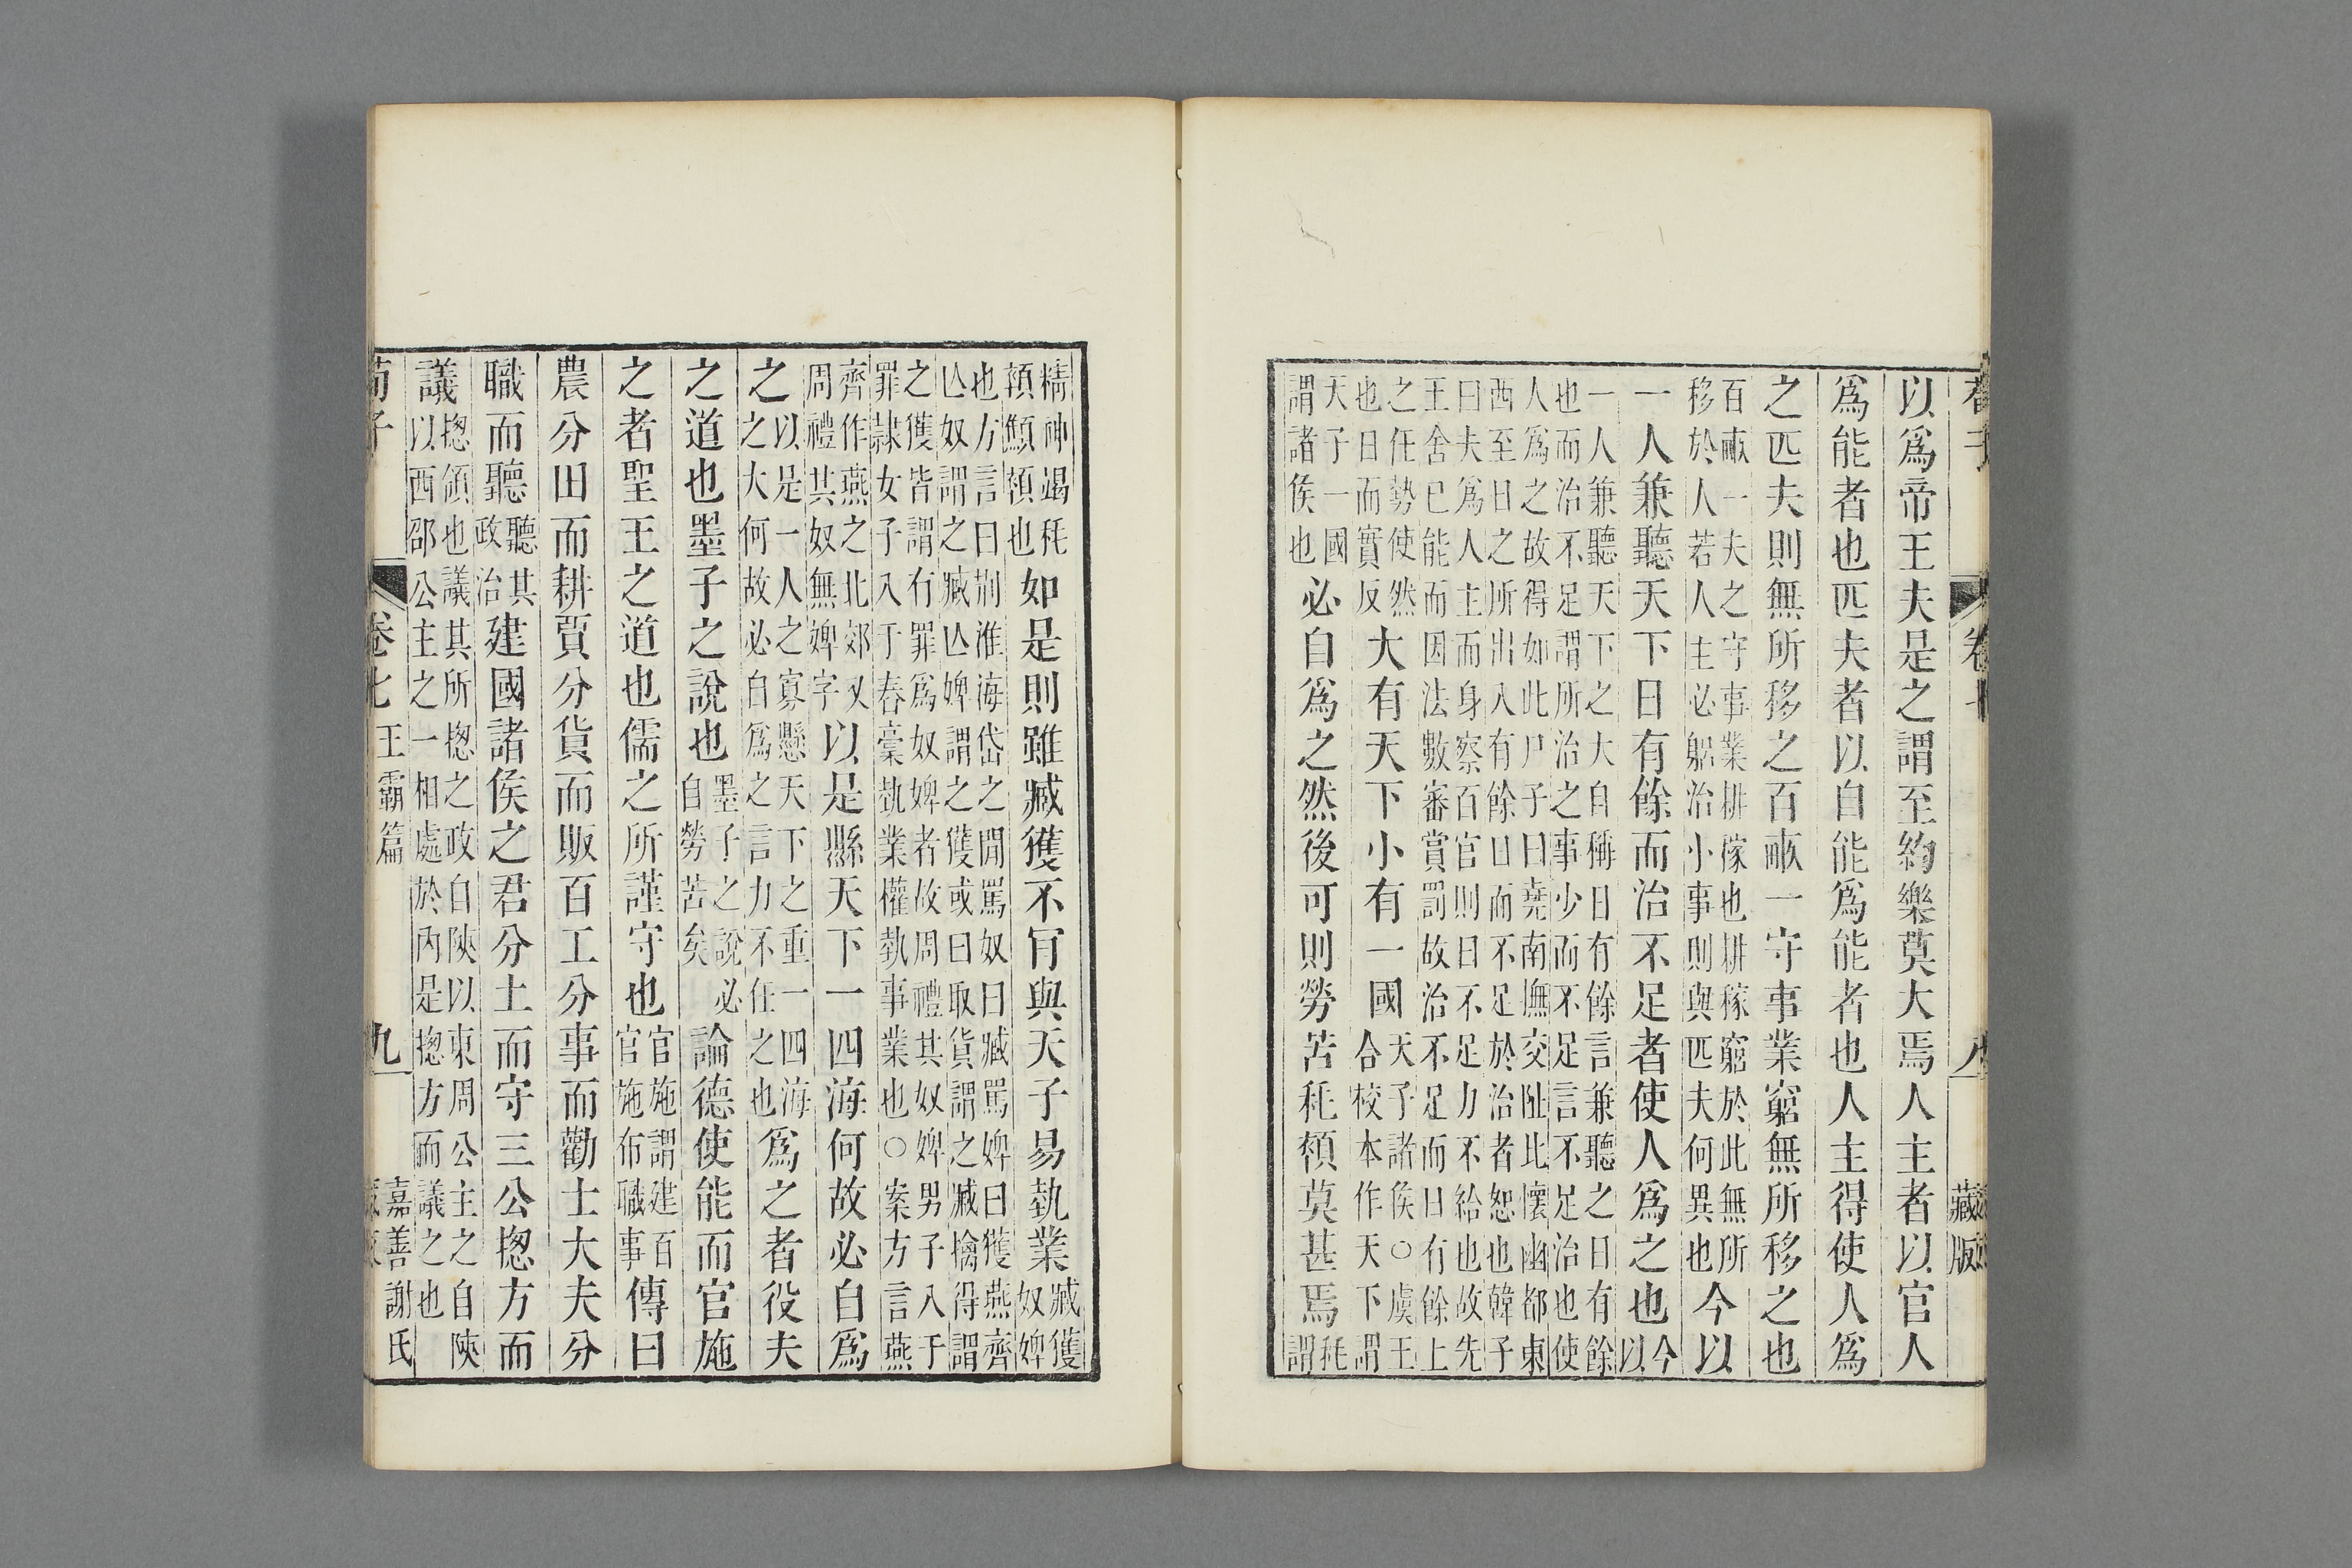 以爲帝王夫是之謂至約樂莫大焉人主者以官人
爲能者也匹夫者以自能爲能者也人主得使人爲
之匹夫則無所移之百畝一守事業窮無所移之也
百畝一夫之守事業耕稼也耕稼窮於此無所
移於人若人主必躬治小事則與匹夫何異也
今以
一人兼聽天下日有餘而治不足者使人爲之也
今以
一人兼聽天下之大自稱日有餘言兼聽之日有餘
也而治不足謂所治之事少而不足言不足治也使
人爲之故得如此尸子曰堯南撫交阯北懷幽都東
西至日之所出入有餘日而不足於治者恕也韓子
曰夫爲人主而身察百官則日不足力不給也故先
王舍已能而因法數審賞罰故治不足而日有餘上
之任勢使然
也日而實反
大有天下小有一國
天子諸侯○虞王
合校本作天下謂
天子一國
謂諸侯也
必自爲之然後可則勞苦耗顇莫甚焉
耗
謂
精神竭耗
顇顦顇也
如是則雖臧獲不肎與天子易埶業
臧獲
奴婢
也方言曰荆淮海岱之閒罵奴曰臧罵婢曰獲燕齊
亾奴謂之臧亾婢謂之獲或曰取貨謂之臧擒得謂
之獲皆謂有罪爲奴婢者故周禮其奴婢男子入于
罪隸女子入于舂稾埶業權埶事業也○案方言燕
齊作燕之北郊又
周禮其奴無婢字
以是縣天下一四海何故必自爲
之
以是一人之寡懸天下之重一四海
之大何故必自爲之言力不任之也
爲之者役夫
之道也墨子之說也
墨子之說必
自勞苦矣
論德使能而官施
之者聖王之道也儒之所謹守也
官施謂建百
官施布職事
傳曰
農分田而耕賈分貨而販百工分事而勸士大夫分
職而聽
聽其
政治
建國諸侯之君分土而守三公摠方而
議
摠領也議其所摠之政自陝以東周公主之自陝
以西邵公主之一相處於內是摠方而議之也
荀子
卷七
王霸篇
九
嘉善謝氏
藏版